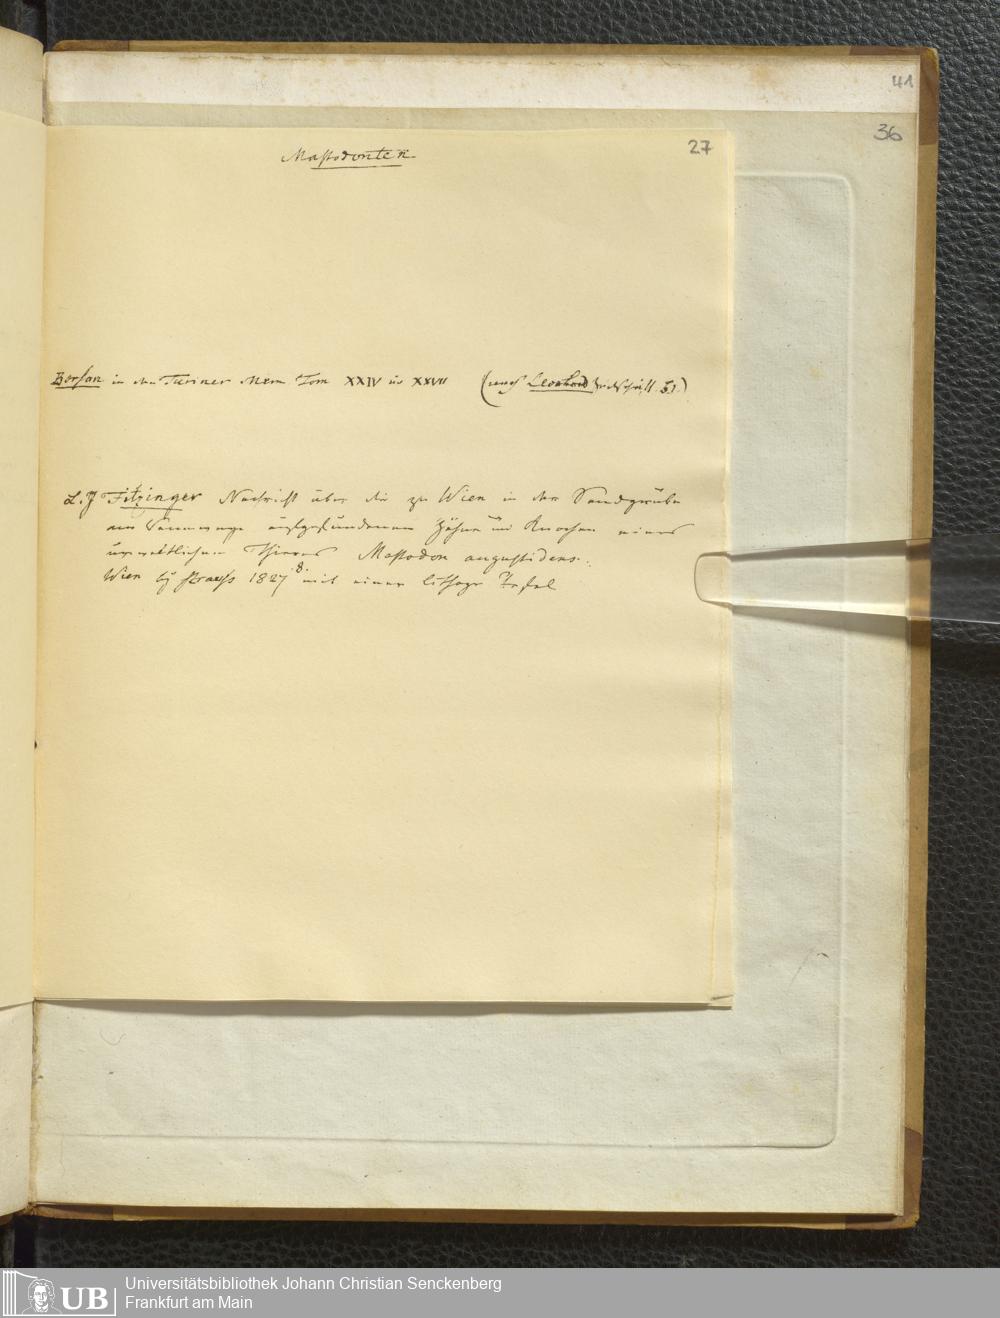 41
36
27
Mastodonten
Borson in den Turiner Mem. Tom XXIV u XXVII (nach Leonhard
L. J Fitzinger Nachricht über die zu Wien in der Sandgrube
am ausgefundenen Zähne und Knochen eines
urweltlichen Thieres Mastodon angustidens.
Wien bey Strauss 1827 8. mit einer lithogr Tafel
UB
Universitätsbibliothek Johann Christian Senckenberg
Frankfurt am Main